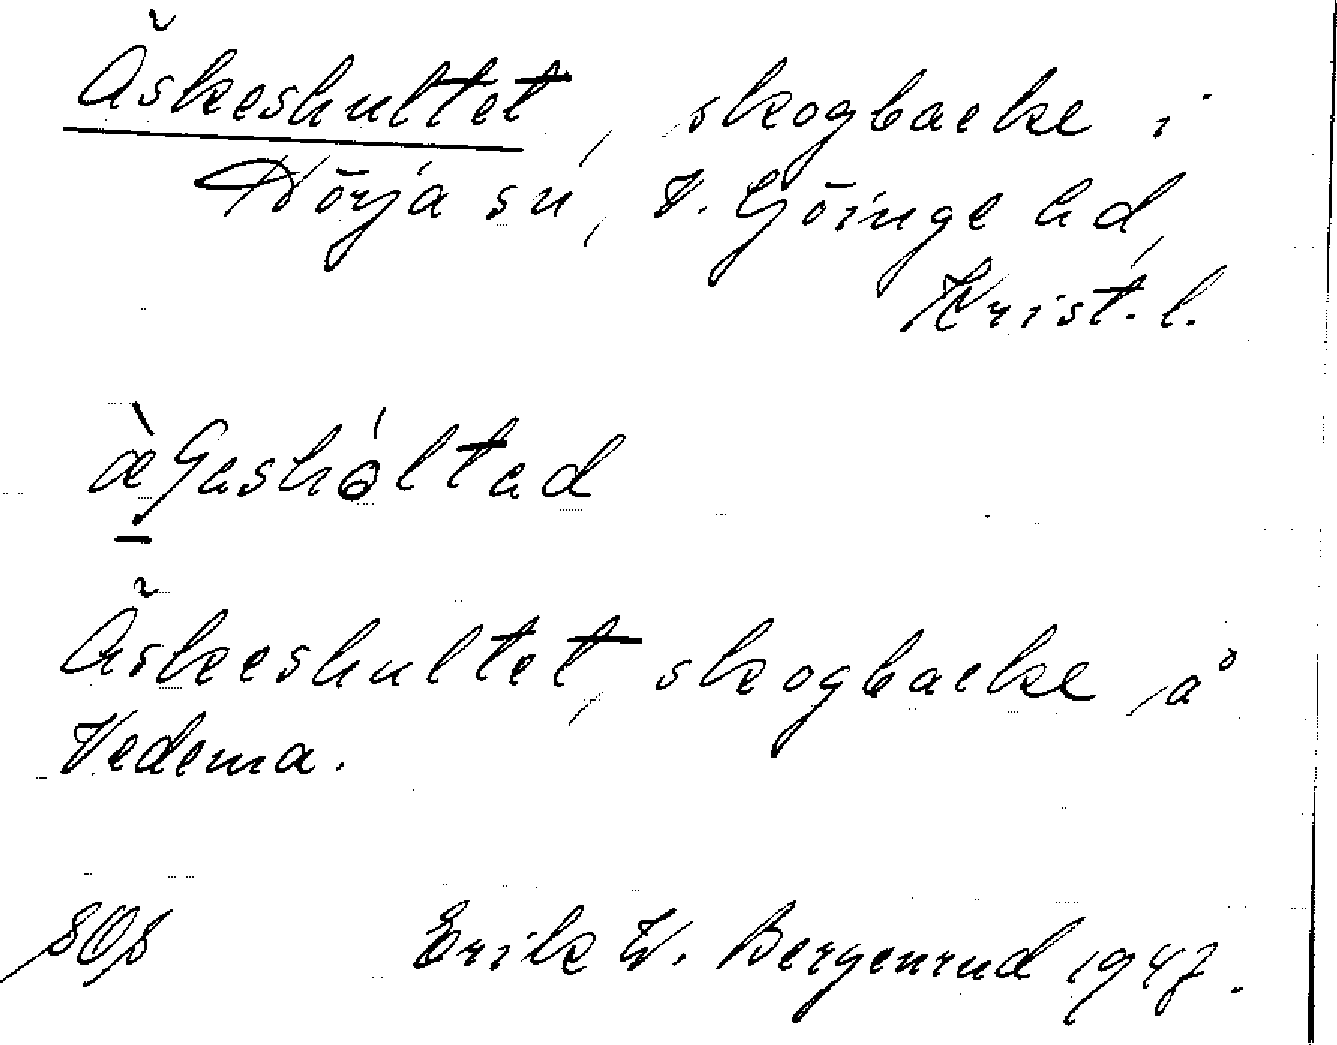 Äskeshultet, skogbacke i
Hörja sn, V. Göinge hd,
Krist. l.
Äskeshultet, skogbacke på
Vedema.
Erik W. Bergenrud 1947.